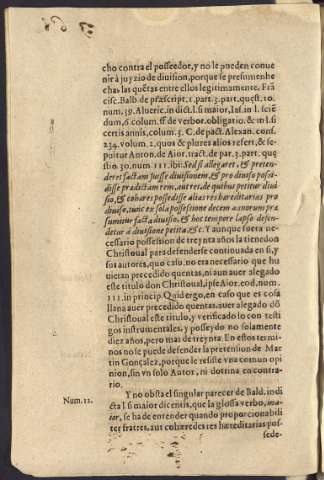 cho contra el posseedor, y no le pueden conue
nir à juyzio de diuision, porque se presumen he
chas las quẽtas entre ellos legitimamente. Frã
cisc. Balb. de præscript. 1. part. 3. part. quęst. 10.
num. 39. Alberic. in dict. l. si maior, Ias. in l. sciẽ
dum, 6. colum. ff. de verbor. obligatio. & in l. si
certis annis, colum. 3. C. de pact. Alexan. cons.
234. volum. 2. quos & plures alios refert, & se-
quitur Anton. de Aior. tract. de par. 3. part. quę
stio. 30. num. 111. ibi: Sed si allegaret, & preten-
deret factam fuisse diuisionem, & pro diuiso posse-
disse prędictam rem, aut res, de quibus petitur diui
sio, & cohæres possedisse alias res hæreditarias pro
diuiso, tunc ex sola possessione decem annorum præ
sumitur facta diuisio, & hoc tempore lapso defen-
detur à diuisione petita, &c. Y aunque fuera ne-
cessario possession de treynta años la tiene don
Christoual para defenderse continuada en si, y
sus autores, quo casu, no era necessario que hu
uieran precedido quentas, ni aun auer alegado
este titulo don Christoual, ipse Aior. eod. num.
111. in princip. Quid ergo, en caso que es cosa
llana auer precedido quentas, auer alegado dõ
Christoual este titulo, y verificado lo con testi
gos instrumentales, y posseydo no solamente
diez años, pero mas de treynta. En estos termi-
nos no le puede defender la pretension de Mar
tin Gonçalez, porque le resiste vna comun opi
nion, sin vn solo Autor, ni dotrina en contra-
rio.
Num. 12.
Y no obsta el singular parecer de Bald. in di
cta l. si maior dicentis, que la glossa verbo, ma-
ior, se ha de entender quando proporcionabili
ter fratres, aut cohæredes res hæreditarias pos-
sede-